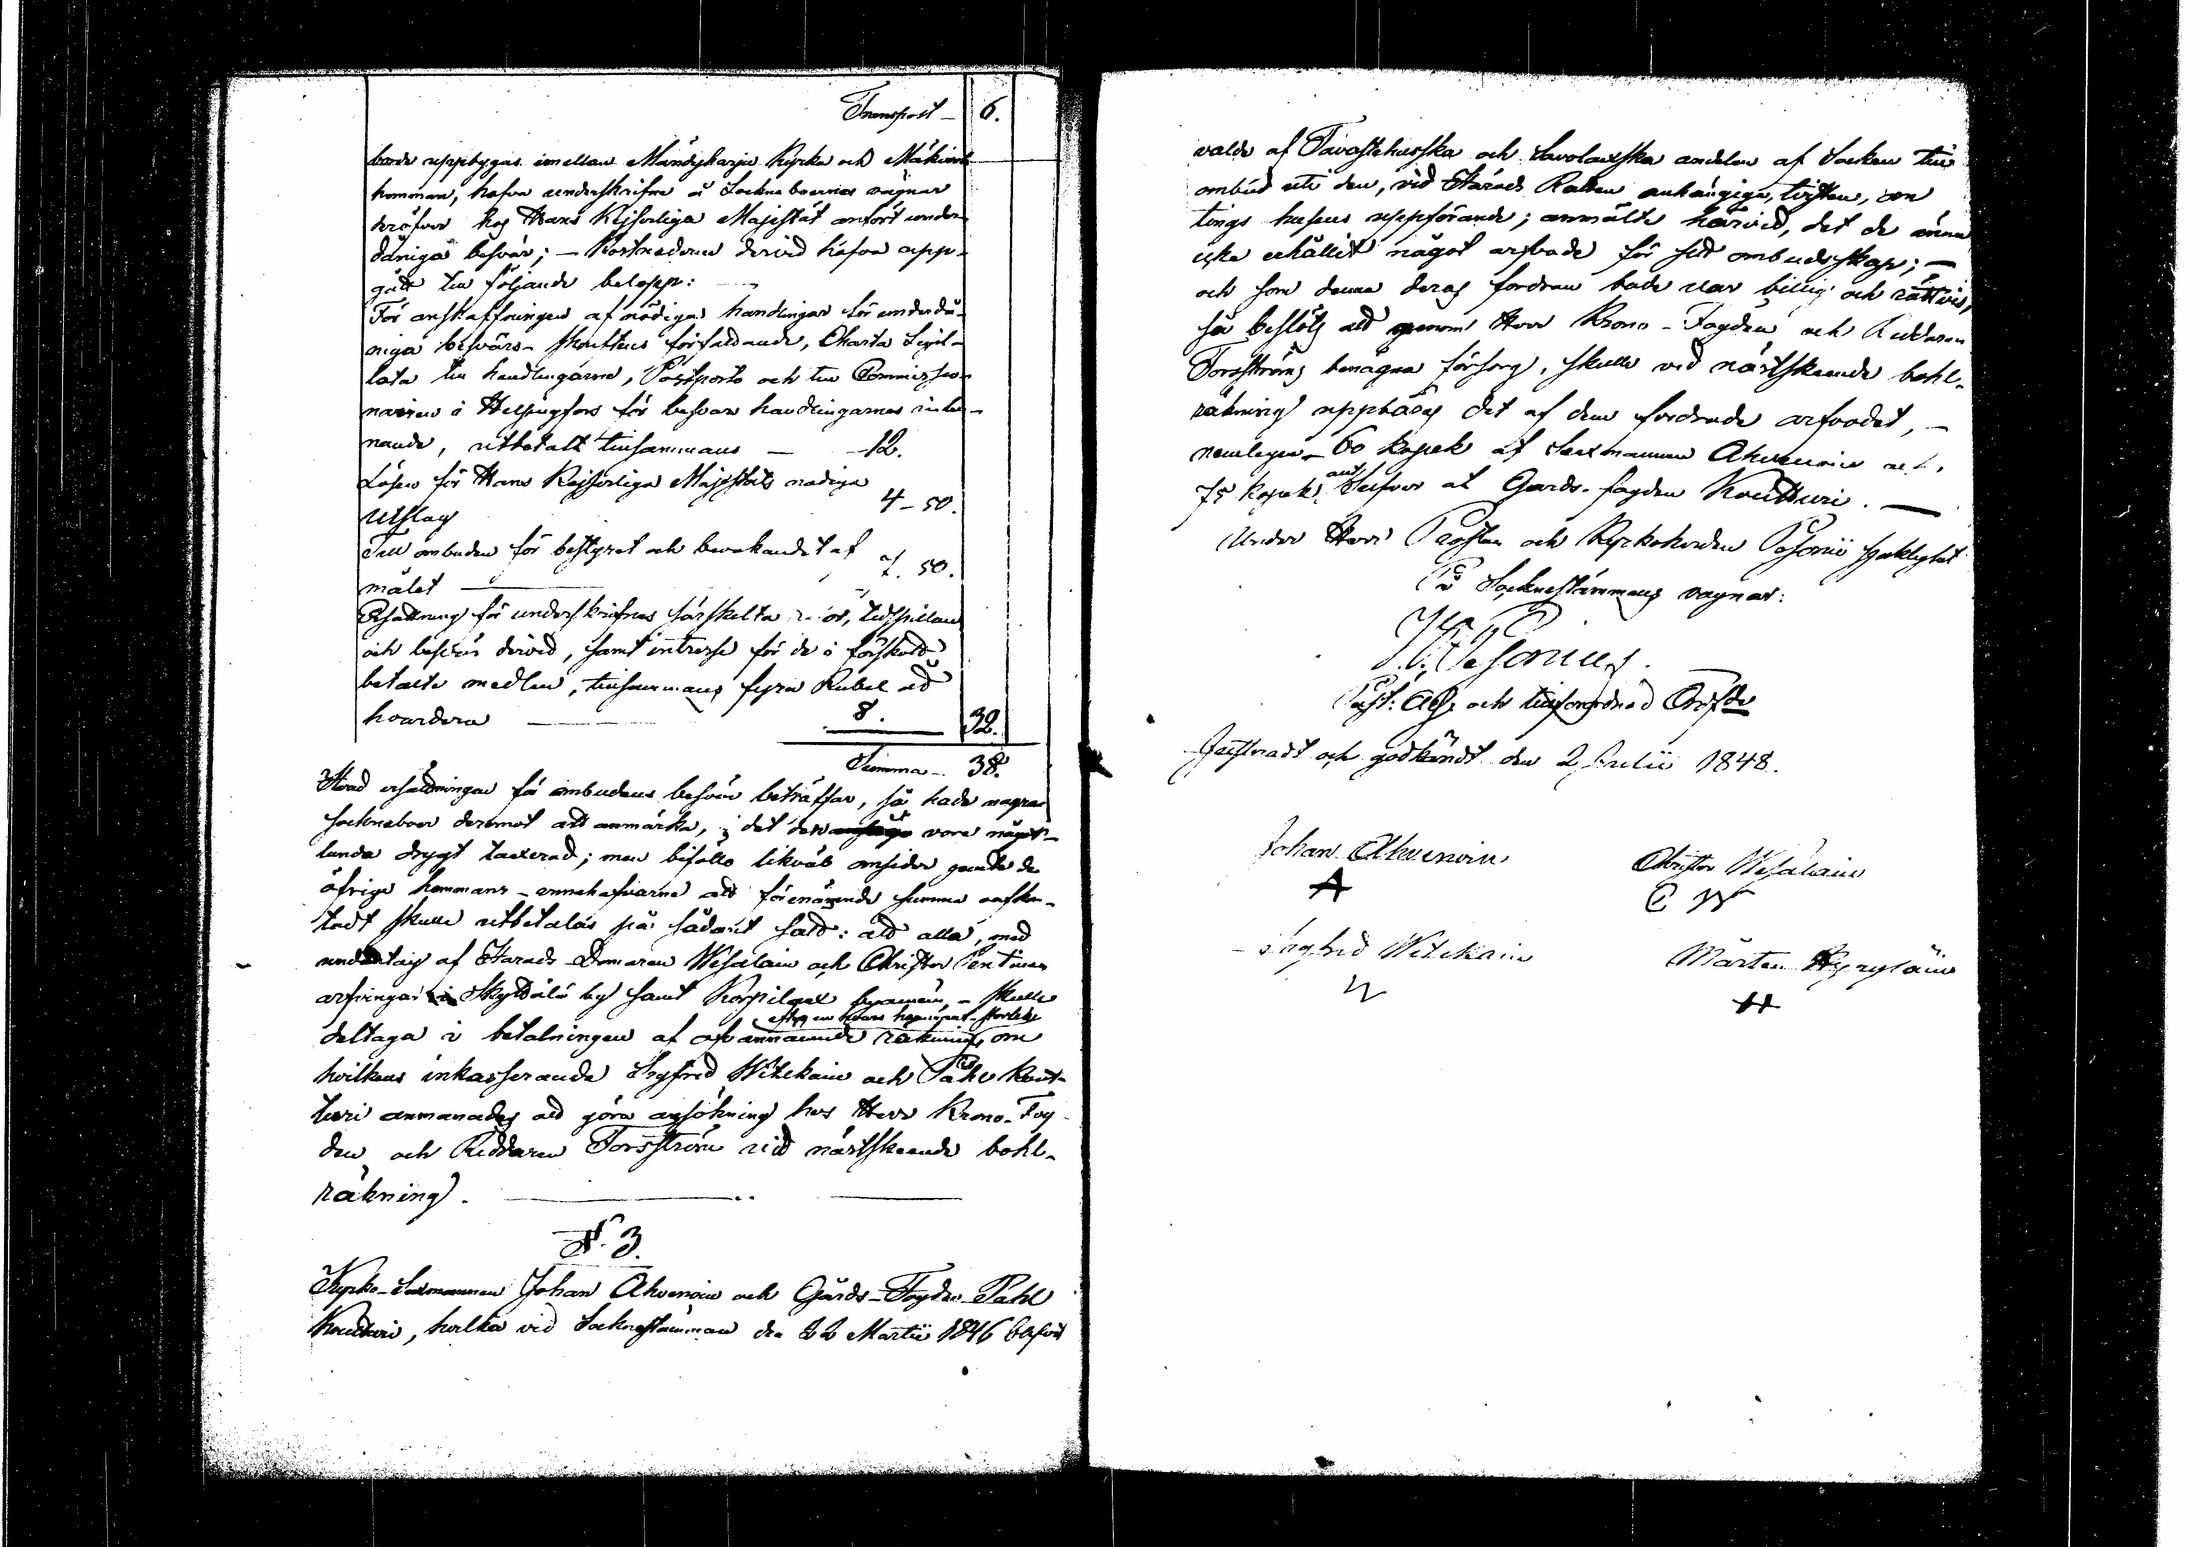 Transport – 6.
borde uppbygas imellan Mändyharju Kyrka och
hemman, hafva underskrifne å Sockneboernes vägnar
hos Hans Kejserliga Majestät anfört under-
dåniga besvär; – Kostnaderne dervid hafva upp-
gått till följande belopp:
För anskaffningen af nödiga handlingar för underdå-
niga besvärs-skriftens författande, Charta Sigil-
lata till handlingarne, Postporto och till Commissio-
naeren i Helsingfors för besvärs handlingarnes inlem-
nande, utbetalt tillsammans – 12.
Lösen för Hans Kejserliga Majestäts nådiga
Utslag 4 – 50.
Till ombuden för bestyret och bevakandet af
målet 7. 50.
Ersättning för underskrifnes särskelta resor, tidspillan
och besvär dervid, samt intresse för de i förskott
betalte medlen, tillsammans fyra Rubel åt
hvardera 8. 32.
Summa – 38.
Hvad ersättningen för ombudens besvär beträffar, så hade några
Sockneboer deremot att anmärka, i det den vore något-
lunda drygt taxerad; men biföllo likväl omsider jemte de
öfrige hemmans-innehafvarne att förenämnde summa
skulle utbetalas på sådant sätt: att alla, med
undantag af Härads Domaren Wesalain och Christer Pentinens
arfvingar i Skyttälä by samt Korpilax – skulle
efter en hvars hemmans storlek
deltaga i betalningen af ofvannämnde räkning, om
hvilkens inkasserande Sigfrid Witekain och Påhl Kout-
turi anmanades att göra ansökning hos Herr Krono-Fog-
den och Riddaren Forsström vid nästskeende bohl-
räkning.
N. 3.
Kyrko-Sexmannen Johan Ahvenain och Gårds-Fogden Påhl
Koutturi, hvilka vid Sockenstämman den 22 Martii 1846 blifvit
valde af Tavastehusska och Savolaxska andelen af Socken till
ombud uti den, vid Härads Rätten anhängiga, tvisten, om
tings husens uppförande; anmälte härvid, det de ännu
icke erhållit något arfvode för sitt ombudskap; –
och som denna deras fordran både var billig och rättvis,
så beslöts att genom Herr Krono-Fogden och Riddaren
Forsströms benägna försorg, skulle vid nästskeende bohl-
räkning uppbäras det af dem fordrade arfvodet, –
nemligen – 60 kopek åt Sexmannen Ahvenain och
75 kopek Silfver åt Gårds-fogden Koutturi. –
Under Herr Prosten och Kyrkoherden Pesonii sjuklighet
På Sockenstämmans vägnar:
Pesonius.
Past: Adj. och tillförordnad Ordförde
Justeradt och godkändt den 2 Julii 1848.
Johan Ahvenain
A
Christer Wesalain
C W
Sigfrid Witekain
W
Mårten Hyryläin
H